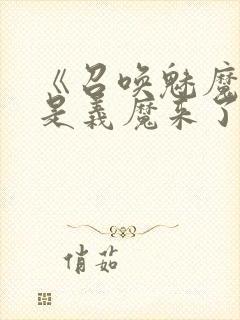 《召唤魅魔
是义魔来了
俏茹